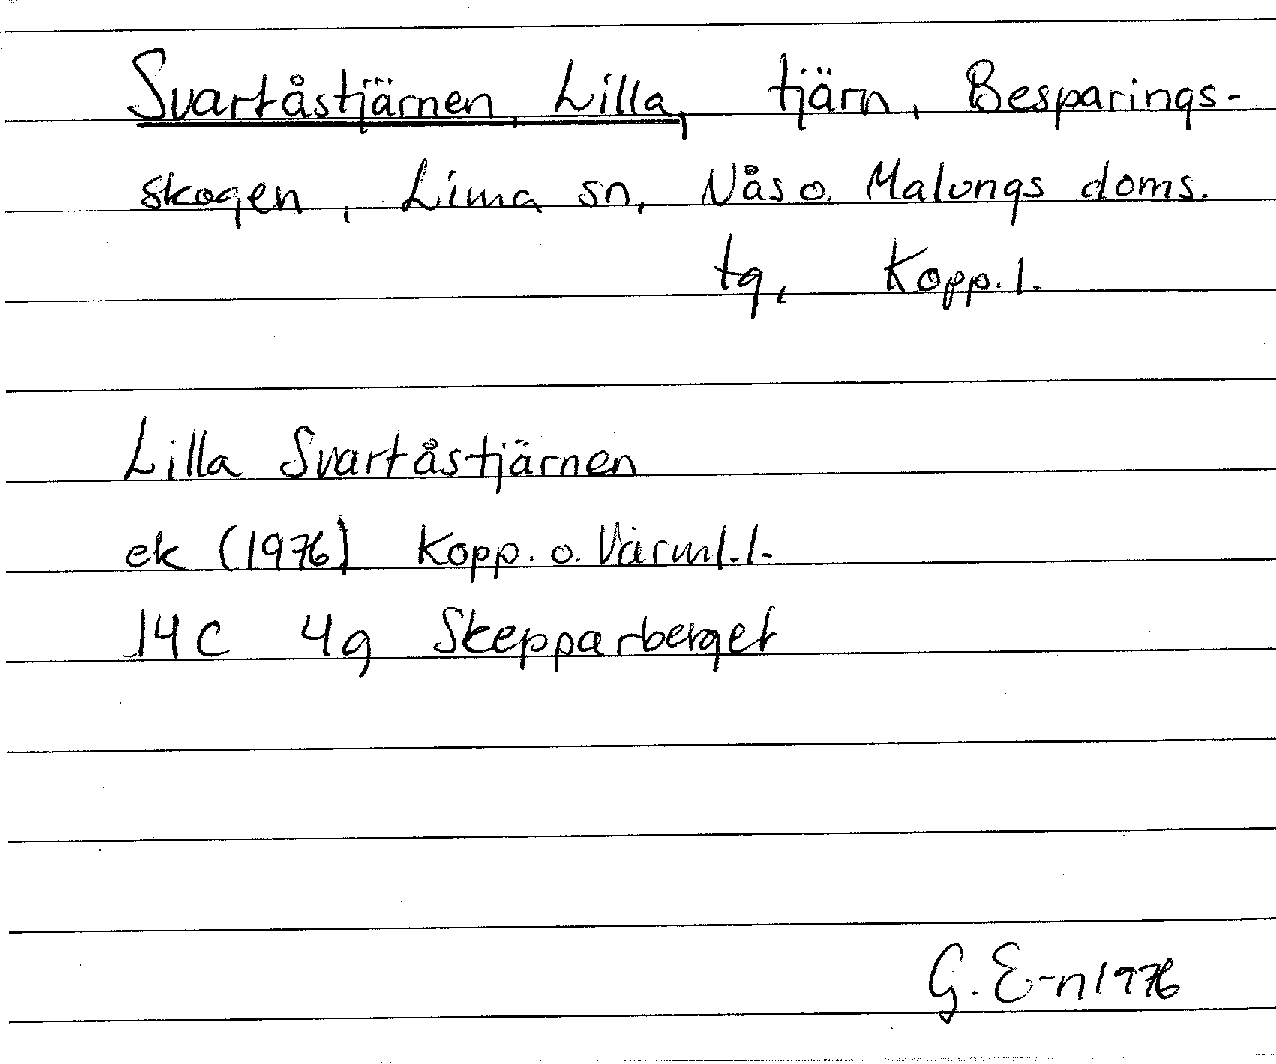 Svartåstjärnen, Lilla, tjärn, Besparings-
skogen, Lima sn, Nås o. Malungs doms.
tg, Kopp. l.
Lilla Svartåstjärnen
ek (1976) Kopp. o. Värml. l.
14C 4g Skepparberget
G. E-n 1976